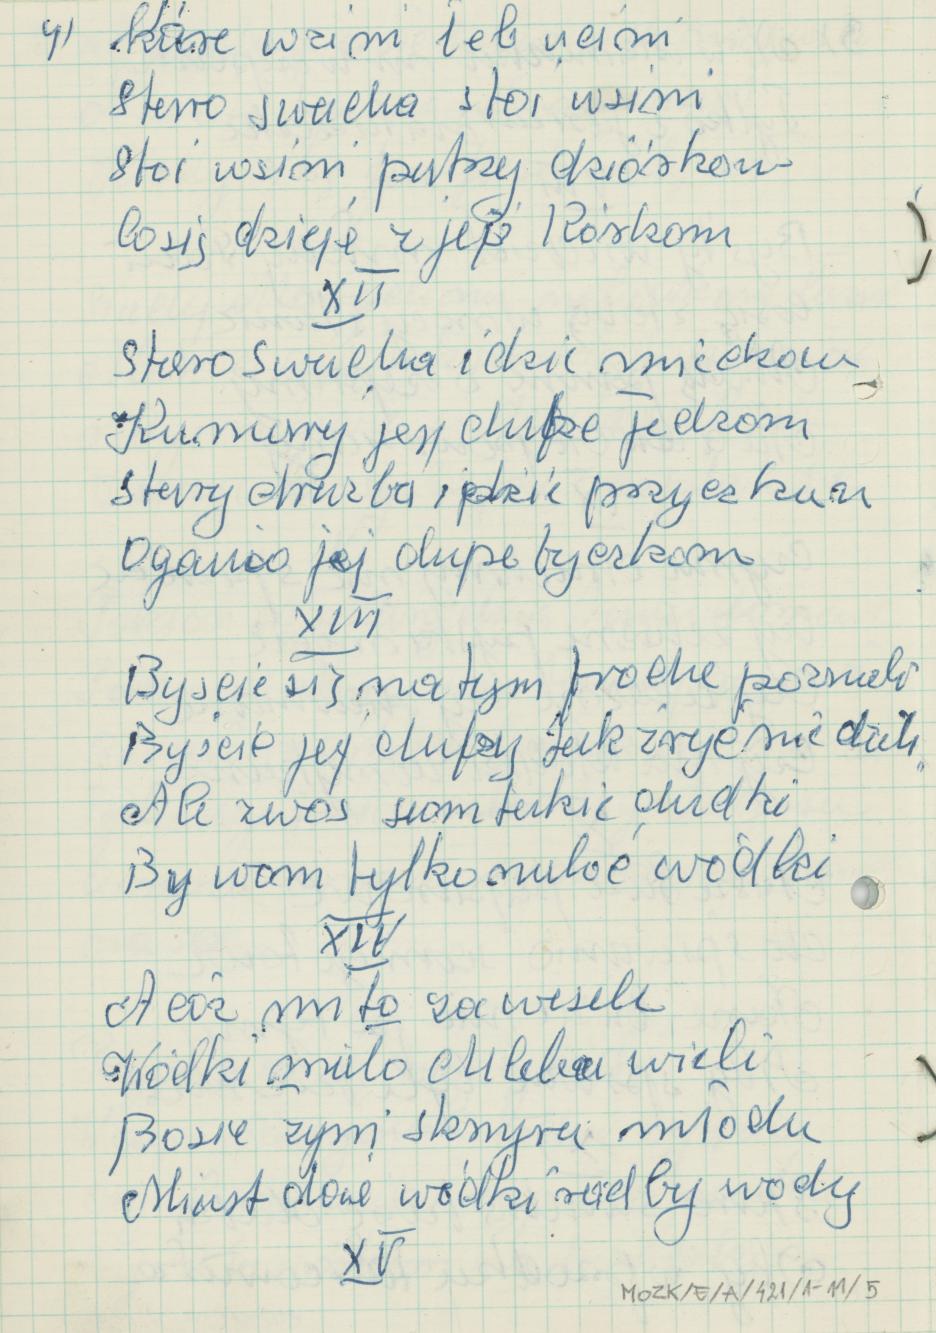 4) Każe wzini łeb ucini
Staro swacha stoi wsini
Stoi wsini patrzy dziórkom
Cosig dzieje z jej Kóskom
XII
Staro swacha idzie miedzom
Kumory jej dupe jedzom
Stary drużba idzie przyczkum
Oganio jej dupe byczkom
XIII
Byście się na tym troche poznali
Byście jej dupy jak żryć nie dali
Ale zwos som takie dudki
By wom tylko nuloć wódki
XIV
A cóż mi to za wesele
Wódki mało chleba wieli
Bosie żymi sknyra młodu
Miast dać wódki rad by wody
XV
MOZK/E/A/421/1-11/5